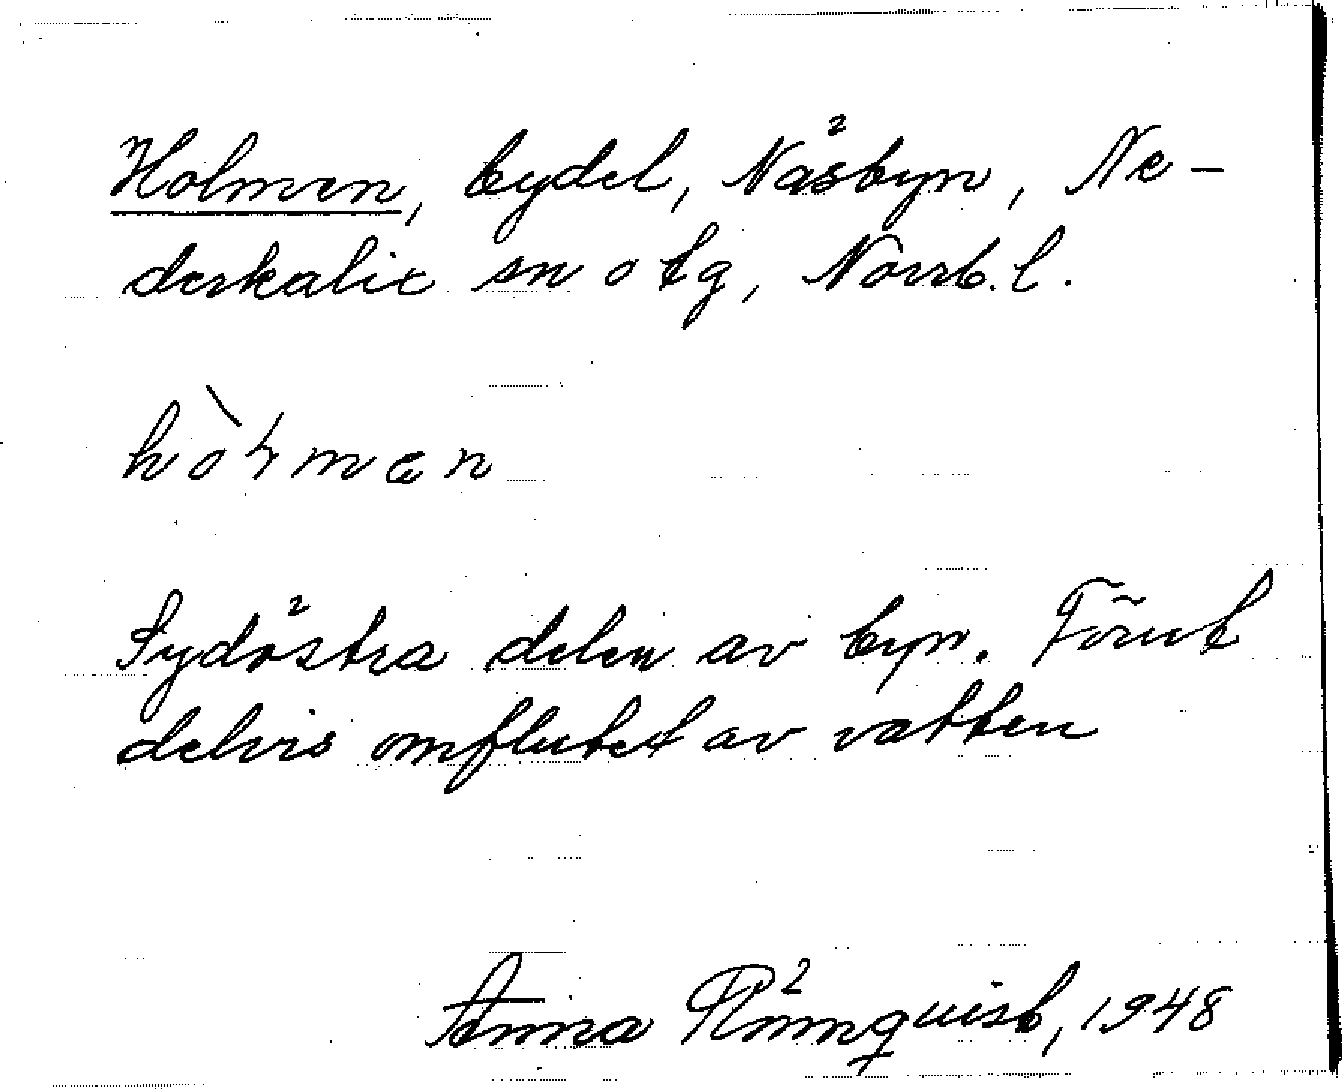 Holmen, bydel, Näsbyn, Ne-
derkalix sn o tg, Norrb. l.
Sydöstra delen av byn. Förut
delvis omflutet av vatten
Anna Rönnquist, 1948